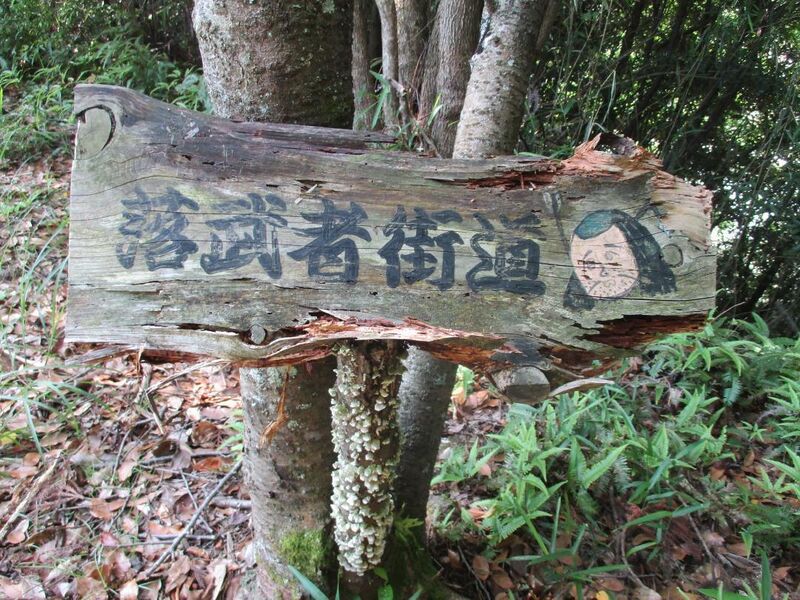 落武者街道